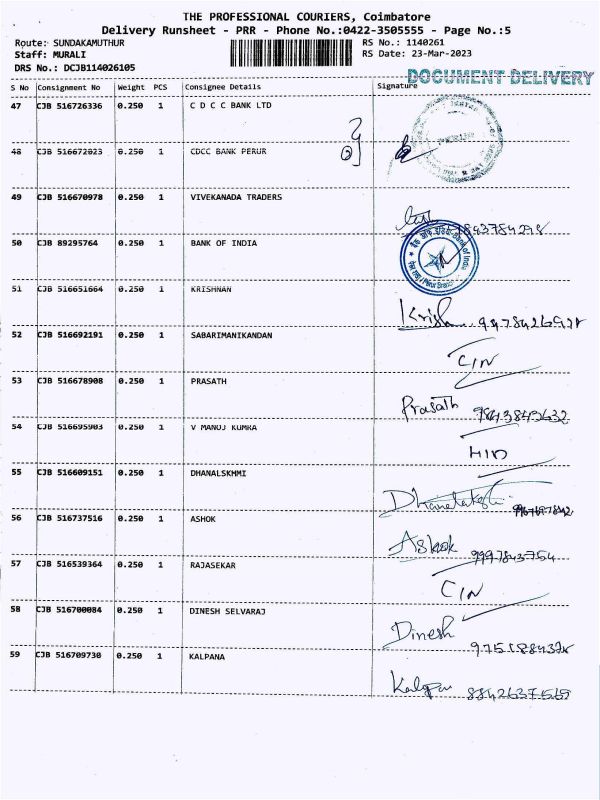 THE PROFESSIONAL COURIERS, Coimbatore
Delivery Runsheet - PRR - Phone No.:0422-3505555 - Page No.:5
Route: SUNDAKAMUTHUR RS No.: 1140261
Staff: MURALI RS Date: 23-Mar-2023
DRS No.: DCJB114026105
DOCUMENT DELIVERY
S No Consignment No Weight PCS Consignee Details Signature
47 CJB 516726336 0.250 1 C D C C BANK LTD
48 CJB 516672023 0.250 1 CDCC BANK PERUR
49 CJB 516670978 0.250 1 VIVEKANADA TRADERS
50 CJB 89295764 0.250 1 BANK OF INDIA
51 CJB 516651664 0.250 1 KRISHNAN
Krish
52 CJB 516692191 0.250 1 SABARIMANIKANDAN
C/N
53 CJB 516678908 0.250 1 PRASATH
Prasath
54 CJB 516695903 0.250 1 V MANOJ KUMRA
55 CJB 516609151 0.250 1 DHANALSKHMI
Dhanalakshi
56 CJB 516737516 0.250 1 ASHOK
Ashok 9997843754
57 CJB 516539364 0.250 1 RAJASEKAR
C/N
58 CJB 516700084 0.250 1 DINESH SELVARAJ
Dinesh
59 CJB 516709730 0.250 1 KALPANA
Kalpa 8842637569